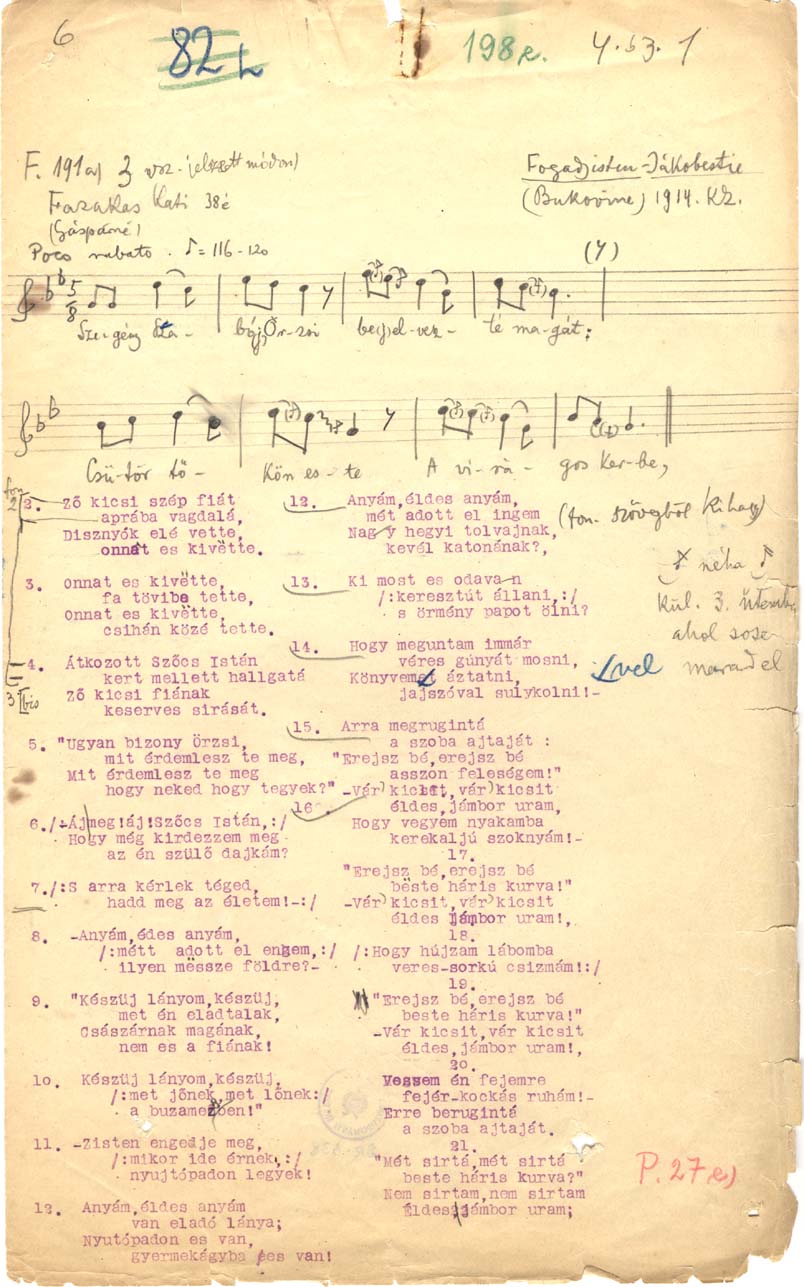 6
82
198e.
4.63.1
F. 191a) 3 vsz. jelzett módon)
Fogadjisten-Jákobestie
Fazakas Kati 38é
(Gáspárné)
(Bukovine) 1914. KZ.
Poco rubato. ♪=116-120
(4)
5
8
Sze-gény Sza- bó(j)Ör-zsi be(j)el-vez- té ma-gát;
Csü-tör tö- kön es-te A vi-rá- gos ker-be,
2. Ző kicsi szép fiát
aprába vagdalá,
Disznyók elé vette,
onnat es kivëtte.
3. Onnat es kivëtte,
fa tövibe tette,
Onnat es kivëtte,
csihán közé tette.
4. Átkozott Szőcs Istán
kert mellett hallgatá
Ző kicsi fiának
keserves sirását.
5. "Ugyan bizony Örzsi,
mit érdemlesz te meg,
Mit érdemlesz te meg
hogy neked hogy tegyek?"
6. /:-Áj meg!áj!Szőcs Istán,:/
Hogy még kirdezzem meg
az én szülő dajkám?
7. /:S arra kérlek téged,
hadd meg az életem!-:/
8. -Anyám,édes anyám,
/:métt adott el engem,:/
ilyen mëssze földre?-
9. "Készüj lányom,készüj,
met én eladtalak,
Császárnak magának,
nem es a fiának!
10. Készüj lányom,készüj,
/:met jőnek,met lőnek:/
a buzamezben!"
11. -Zisten engedje meg,
/:mikor ide érnek,:/
nyujtópadon legyek!
12. Anyám,éldes anyám
van eladó lánya;
Nyutópadon es van,
gyermekágyba es van!
12. Anyám,éldes anyám,
mét adott el ingem
Nagy hegyi tolvajnak,
kevél katonának?,
(fon. szövegből kihagy)
♪ néha ♪
kül. 3. ütemb.
ahol sose
marad el
13. Ki most es odavan
/:keresztút állani,:/
s örmény papot ölni?
14. Hogy meguntam immár
véres gúnyát mosni,
Könyvemel áztatni,
jajszóval sulykolni!-
vel
15. Arra megrugintá
a szoba ajtaját :
"Erejsz bé,erejsz bé
asszon feleségem!"
-Vár kicsit,vár kicsit
éldes,jámbor uram,
16.
Hogy vegyem nyakamba
kerekaljú szoknyám!-
17.
"Erejsz bé,erejsz bé
bëste háris kurva!"
-Vár kicsit,vár kicsit
éldes jámbor uram!,
18.
/:Hogy hújzam lábomba
veres-sorkú csizmám!:/
19.
"Erejsz bé,erejsz bé
beste háris kurva!"
-Vár kicsit,vár kicsit
éldes,jámbor uram!,
20.
Vessem én fejemre
fejér-kockás ruhám!-
Erre berugintá
a szoba ajtaját.
21.
"Mét sirtá,mét sirtá
beste háris kurva?"
Nem sirtam,nem sirtam
Éldes jámbor uram;
P. 27e)